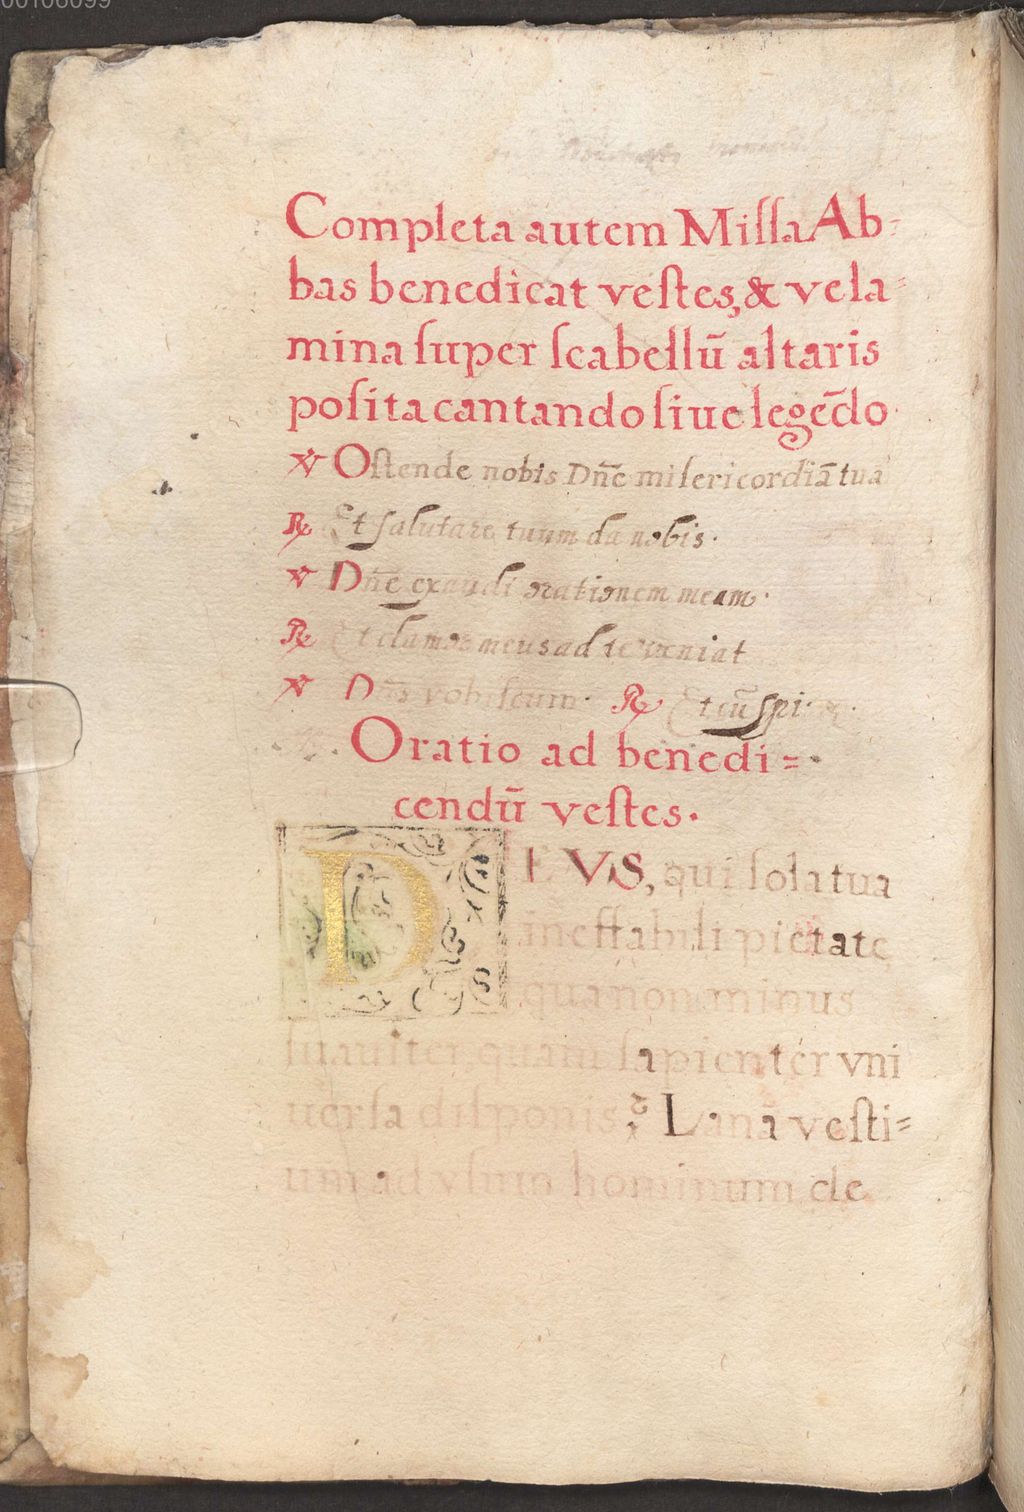 Completa autem Miſſa Ab-
bas benedicat veſtes, & vela-
mina ſuper ſcabellū altaris
poſita cantando ſiue legēdo
℣ Oſtende nobis Dn̄e miſericordiā tuā
℟ Et ſalutare tuum da nobis.
℣ Dn̄e exaudi orationem meam.
℟ Et clamor meus ad te veniat
℣ Dn̄s vobiſcum. ℟ Et cū ſpi.
Oratio ad benedi=
cendū veſtes.
DEVS, qui ſola tua
ineffabili pietate
qua non minus
ſuauiter, quam ſapienter vni
uerſa diſponis; Lanā veſti=
um ad vſum hominum de